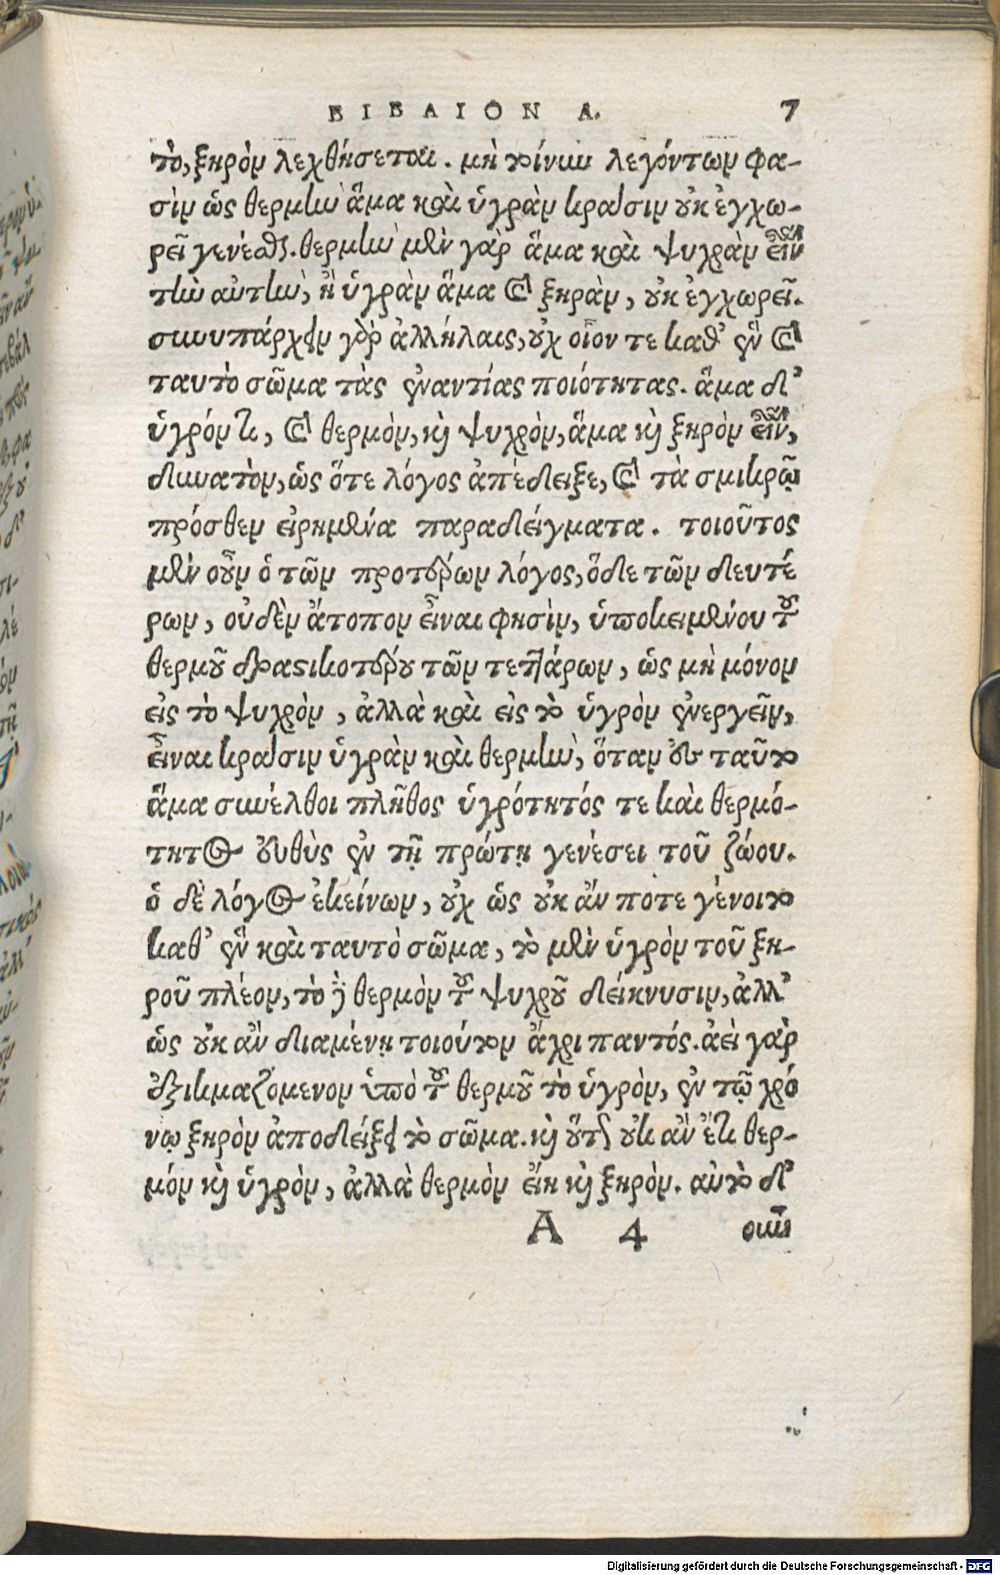 ΒΙΒΛΙΟΝ Α. 7
τὸ, ξηρὸν λεχθήσεται. μὴ τοίνυν λεγόντων φα-
σὶν ὡς θερμὴν ἅμα καὶ ὑγρὰν κρᾶσιν οὐκ ἐγχω-
ρεῖ γενέσθαι. θερμὴν μὲν γὰρ ἅμα καὶ ψυχρὰν εἶναι
τὴν αὐτὴν, ἢ ὑγρὰν ἅμα καὶ ξηρὰν, οὐκ ἐγχωρεῖ.
συνυπάρχειν γὰρ ἀλλήλαις, οὐχ οἷόν τε καθ’ ἓν καὶ
ταυτὸ σῶμα τὰς ἐναντίας ποιότητας. ἅμα δ’
ὑγρόν τε, καὶ θερμὸν, καὶ ψυχρὸν, ἅμα καὶ ξηρὸν εἶναι,
δυνατὸν, ὡς ὅτε λόγος ἀπέδειξε, καὶ τὰ σμικρῷ
πρόσθεν εἰρημένα παραδείγματα. τοιοῦτος
μὲν οὖν ὁ τῶν προτέρων λόγος, ὅδε τῶν δευτέ
ρων, οὐδὲν ἄτοπον εἶναι φησὶν, ὑποκειμένου τοῦ
θερμοῦ δραστικοτέρου τῶν τεττάρων, ὡς μὴ μόνον
εἰς τὸ ψυχρὸν, ἀλλὰ καὶ εἰς τὸ ὑγρὸν ἐνεργεῖν,
εἶναι κρᾶσιν ὑγρὰν καὶ θερμὴν, ὅταν εἰς ταῦτο
ἅμα συνέλθοι πλῆθος ὑγρότητός τε καὶ θερμό-
τητος εὐθὺς ἐν τῇ πρώτῃ γενέσει τοῦ ζώου.
ὁ δὲ λόγος ἐκείνων, οὐχ ὡς οὐκ ἄν ποτε γένοιτο
καθ’ ἓν καὶ ταυτὸ σῶμα, τὸ μὲν ὑγρὸν τοῦ ξη-
ροῦ πλέον, τὸ δὲ θερμὸν τοῦ ψυχροῦ δείκνυσιν, ἀλλ’
ὡς οὐκ ἂν διαμένῃ τοιούτον ἄχρι παντός. ἀεὶ γὰρ
ἐξικμαζόμενον ὑπὸ τοῦ θερμοῦ τὸ ὑγρὸν, ἐν τῷ χρό
νῳ ξηρὸν ἀποδείξει τὸ σῶμα. καὶ οὕτως οὐκ ἂν ἔτι θερ-
μόν καὶ ὑγρὸν, ἀλλὰ θερμὸν εἴη καὶ ξηρὸν. αὐτὸ δ’
Α 4 οὖν
Digitalisierung gefördert durch die Deutsche Forschungsgemeinschaft - DFG